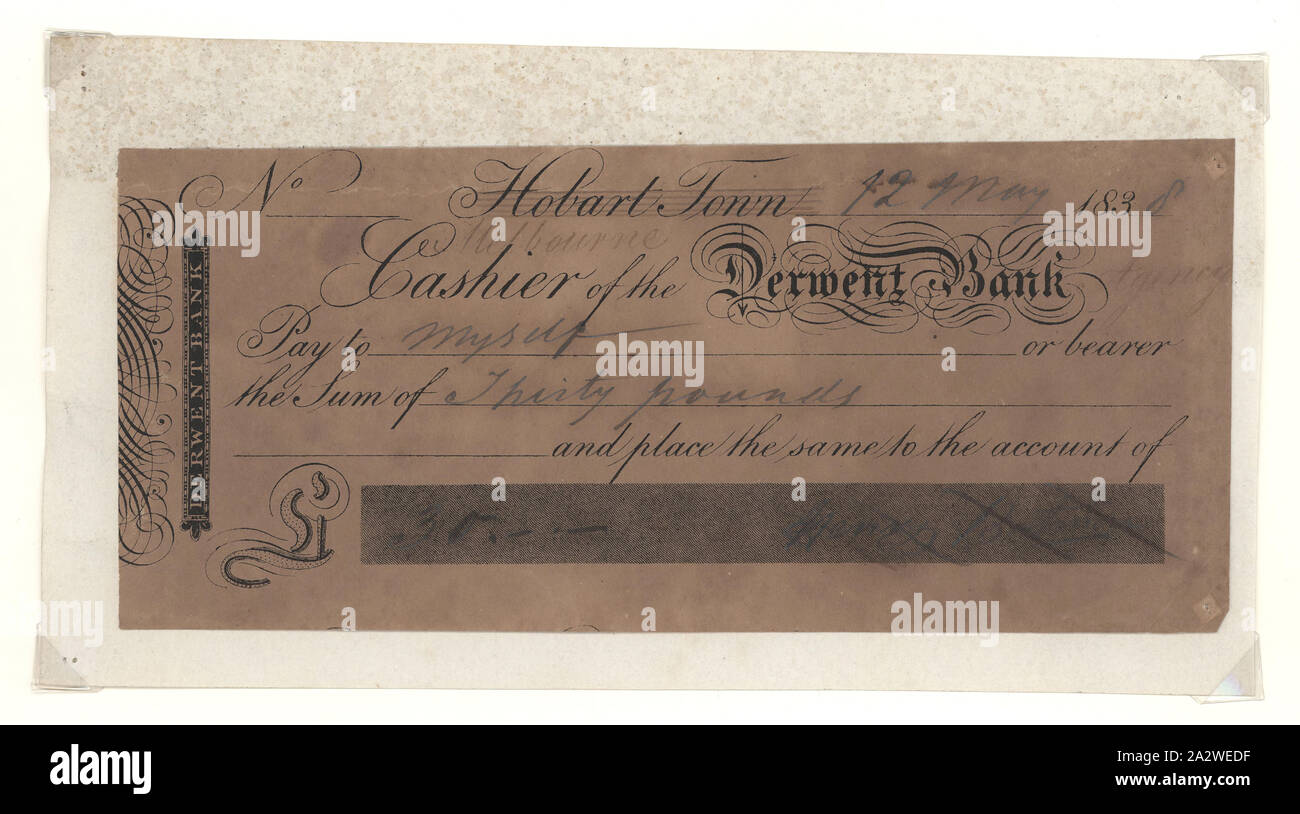 No Hobart Town 12 May 1838
Melbourne
Cashier of the Derwent Bank Agency
Pay to Myself or bearer
the Sum of Thirty pounds
and place the same to the account of
£ 30.-.- Henry
DERWENT BANK
alamy
Image ID: 2A2WEDF
www.alamy.com